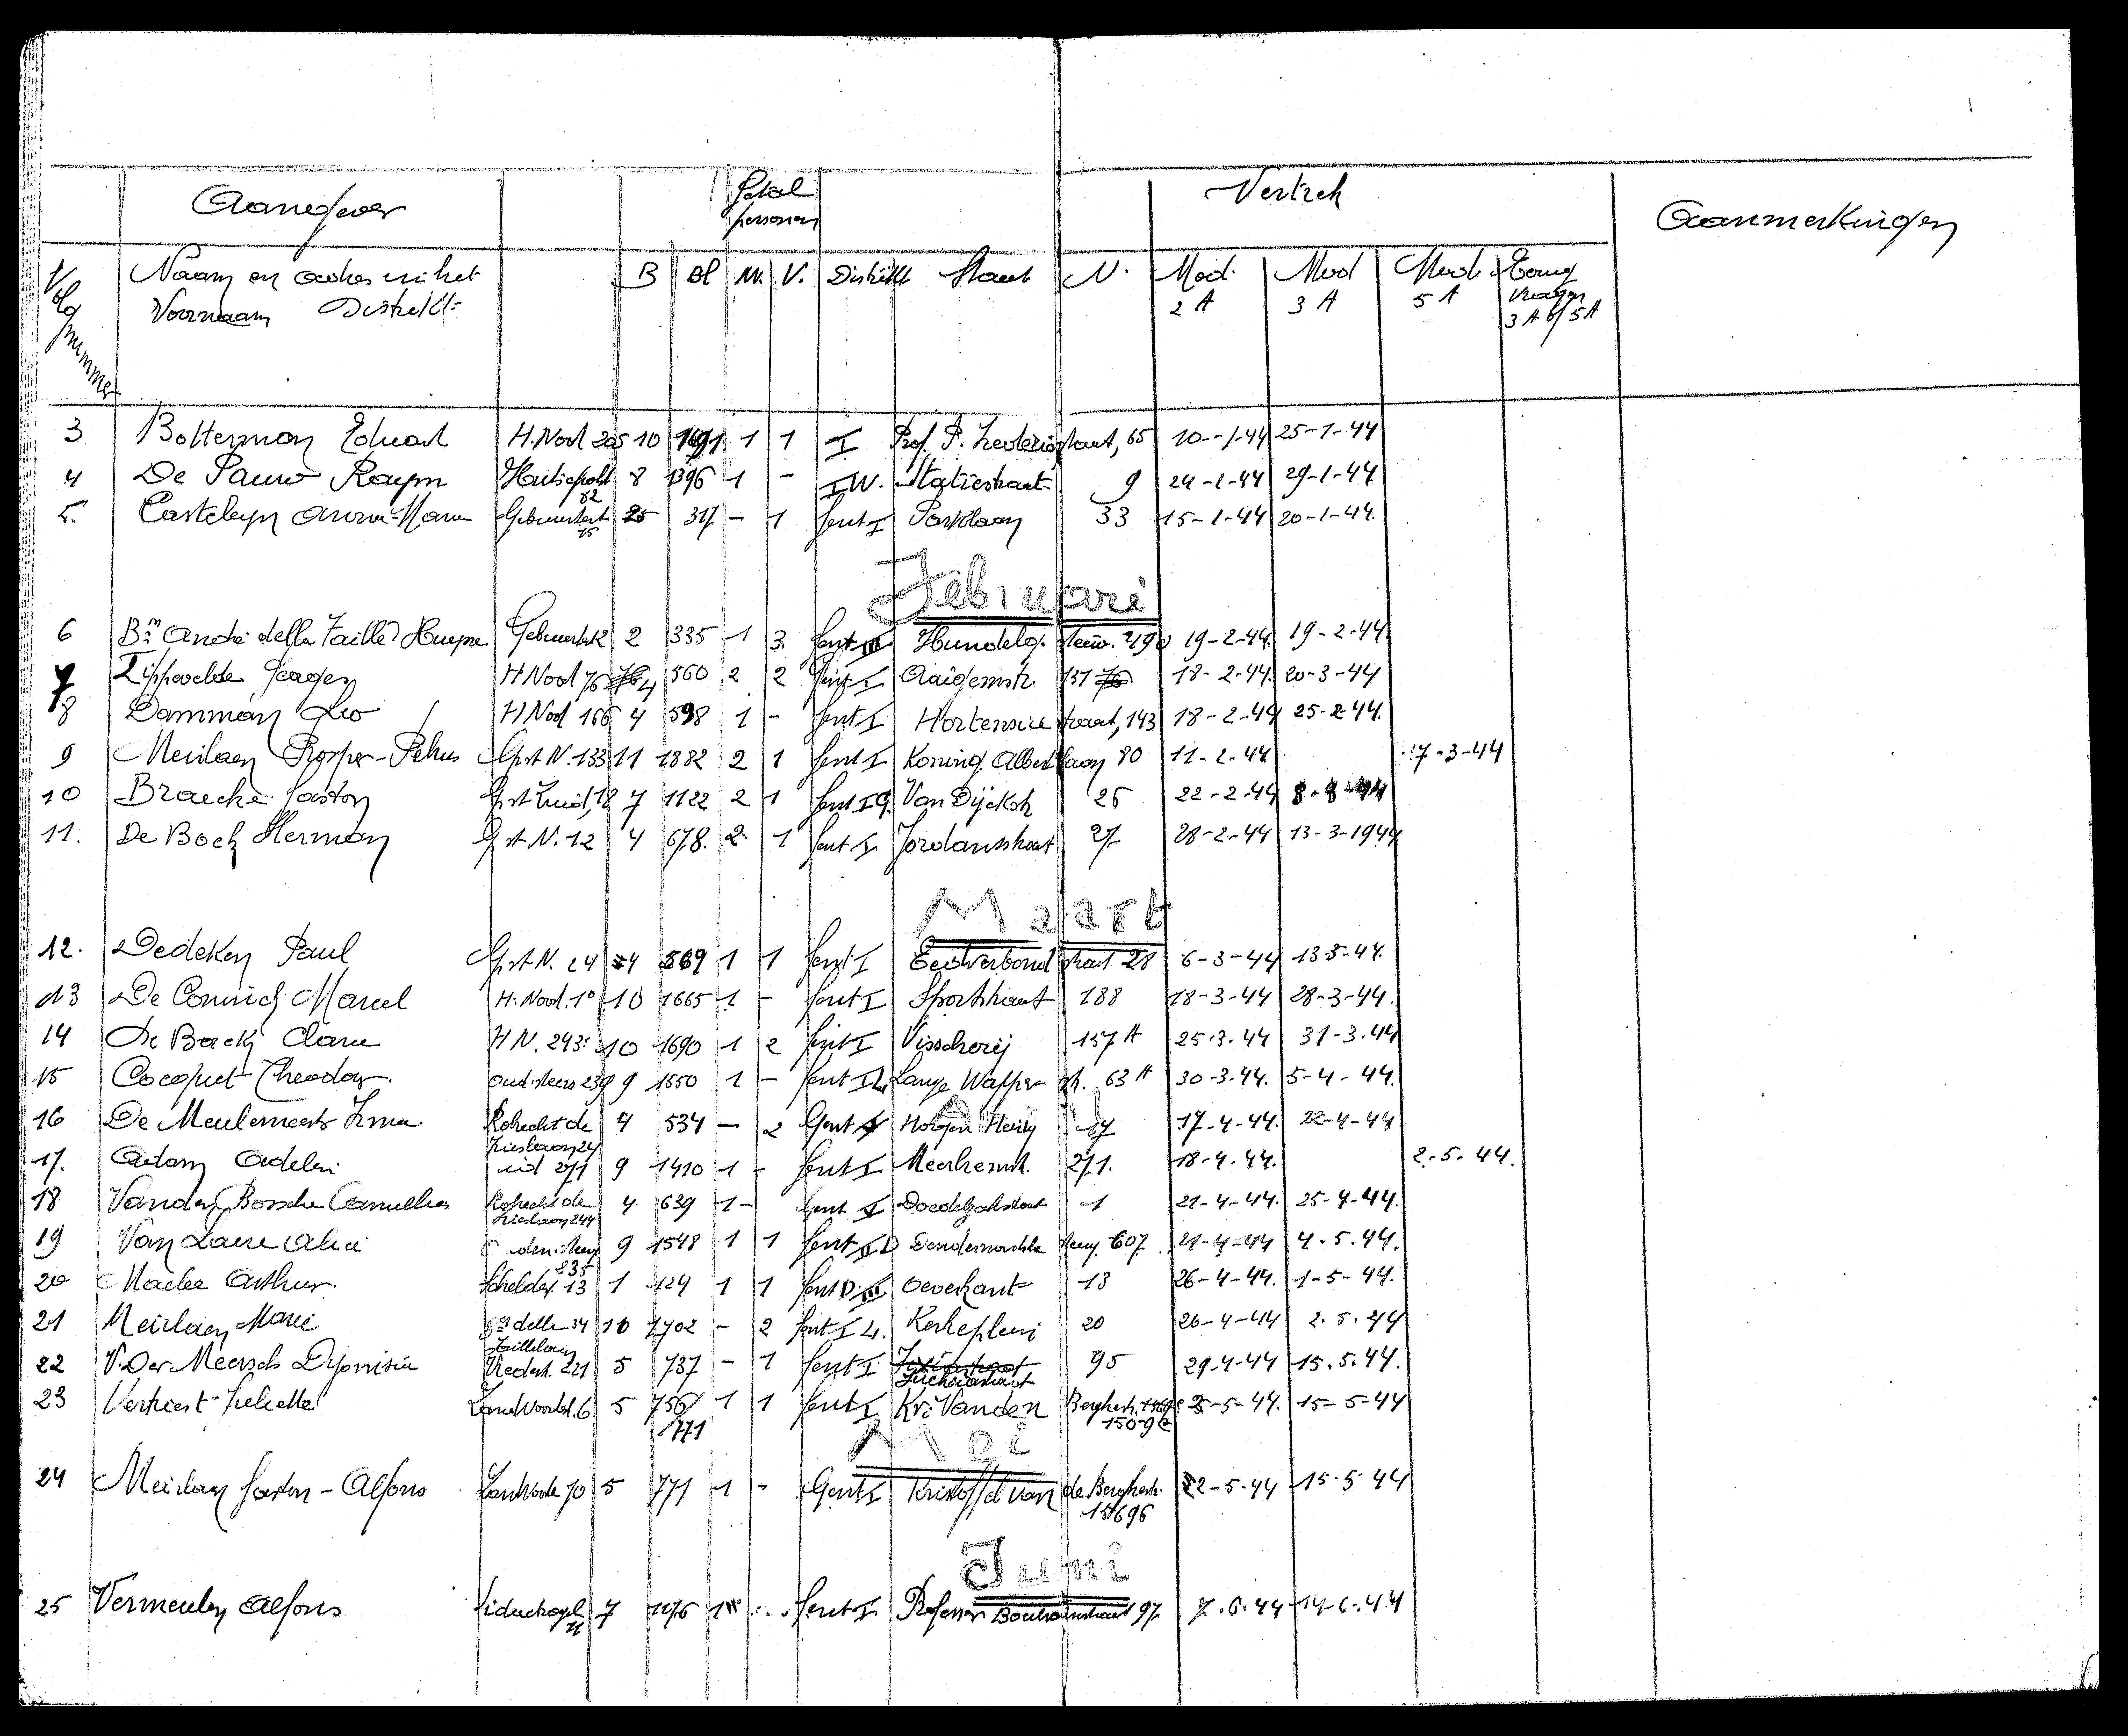 Aangever Getal personen Vertrek Aanmerkingen
Volg nummer Naam en adres in het B Bl M. V. Distrikt Straat N. Mod. 2 A Mod 3 A Mod 5 A Terug vragen 3 A of 5 A
Voornaam Distrikt:
3 Botterman Eduard H. Nood 205 10 1 1 I Prof. P. straat, 65 10-1-44 25-1-44
4 De Pauw Raym 82 8 1396 1 - I W. Statiestraat 9 24-1-44 29-1-44
5. Casteleyn Anna-Maria 15 25 317 - 1 Gent I Parklaan 33 15-1-44 20-1-44.
Februari
6 Bon André della Faille d'Huysse 2 335 1 3 Gent Hundelg. steenw. 490 19-2-44. 19-2-44.
7 Lippevelde H Nood 76 4 560 2 2 Gent I Aaigemstr. 131 18-2-44. 20-3-44
8 Damman Leo H Nood 166 4 598 1 - Gent I Hortensia straat, 143 18-2-44 25-2-44.
9 Meirlaen Prosper-Petrus Gst N. 133 11 1882 2 1 Gent I Koning Albert laan 80 11-2-44. 17-3-44
10 Braecke Gaston Gst Zuid, 18 7 1122 2 1 Gent I G. Van Dijckstr 26 22-2-44
11. De Bock Herman Gst N. 12 4 678. 2 1 Gent I Jordanstraat 27 28-2-44 13-3-1944
Maart
12. Dedeken Paul Gst N. 24 4 569 1 1 Gent I Eedverbond straat 28 6-3-44 13-3-44.
13 De Coninck Marcel H. Nood. 10 10 1665 1 - Gent I Sportstraat 188 18-3-44 28-3-44.
14 De Backer Clara H N. 243 10 1690 1 2 Gent I Visscherij 157 A 25.3.44 31-3.44
15 Cocquet Theodor. oud. steenw 239 9 1550 1 - Gent I Lange Wapper str. 63 A 30-3-44. 5-4-44.
16 De Meulemeester Irma. Robrecht de Frieslaan 24 4 534 - 2 Gent Henry 17 17-4-44. 22-4-44
17. Adam Adelin 271 9 1410 1 - Gent I Meerhemstr. 271. 18-4.44. 2-5-44.
18 Vanden Bossche Camillus Robrecht de Frieslaan 244 4 639 1 - Gent I Doedelzakstraat 1 21-4-44. 25-4-44.
19 Van Laere Alice 235 9 1548 1 1 Gent Dendermondse steenw. 607 21-4-44 4.5.44.
20 Maebe Arthur. Schelder. 13 1 124 1 1 Gent D. III Oeverkant 13 26-4-44. 1-5-44.
21 Meirlaen Marie Bon della Faillelaan 34 10 1702 - 2 Gent I L. Kerkeplein 20 26-4-44 2.5.44
22 V. Der Meersch Dyonisia Vredestr. 221 5 737 - 1 Gent I 95 29-4-44 15.5.44.
23 Verhiest Juliette Zandvoordestr. 6 5 756/771 1 1 Gent I Kr. Vanden Berghestr. 150-9 5-5-44. 15-5-44
Mei
24 Meirlaen Gaston-Alfons Zandvoorde 70 5 771 1 - Gent I Kristoffel van de Berghestr. 22-5-44 15-5 44
Juni
25 Vermeulen Alfons 7 1076 1 Gent I Professor straat 97. 7.6.44 14-6-44